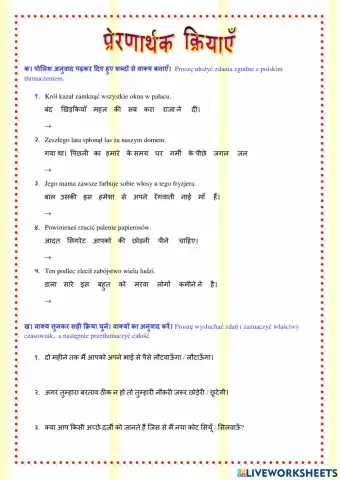 प्रेरणार्थक क्रियाएँ
क। पोलिश अनुवाद पढ़कर दिए हुए शब्दों से वाक्य बनाएँ। Proszę ułożyć zdania zgodne z polskim
tłumaczeniem.
१. Król kazał zamknąć wszystkie okna w pałacu.
बंद खिड़कियाँ महल की सब करा राजा ने दीं।
→
२. Zeszłego lata spłonął las za naszym domem.
गया था। पिछली का हमारे के समय घर गर्मी के पीछे जंगल जल
→
३. Jego mama zawsze farbuje sobie włosy u tego fryzjera.
बाल उसकी इस हमेशा से अपने रँगवाती नाई माँ हैं।
→
४. Powinieneś rzucić palenie papierosów.
आदत सिगरेट आपको की छोड़नी पीने चाहिए।
→
५. Ten podlec zlecił zabójstwo wielu ludzi.
डाला सारे इस बहुत को मरवा लोगों कमीने ने है।
→
ख। वाक्य सुनकर सही क्रिया चुनें। वाक्यों का अनुवाद करें। Proszę wysłuchać zdań i zaznaczyć właściwy
czasownik, a następnie przetłumaczyć całość.
१. दो महीने तक मैं आपको अपने भाई से पैसे लौटवाऊँगा / लौटाऊँगा।
२. अगर तुम्हारा बरताव ठीक न हो तो तुम्हारी नौकरी ज़रूर छोड़ेगी / छूटेगी।
३. क्या आप किसी अच्छे दर्ज़ी को जानते हैं जिस से मैं नया कोट सियूँ / सिलवाऊँ?
LIVEWORKSHEETS